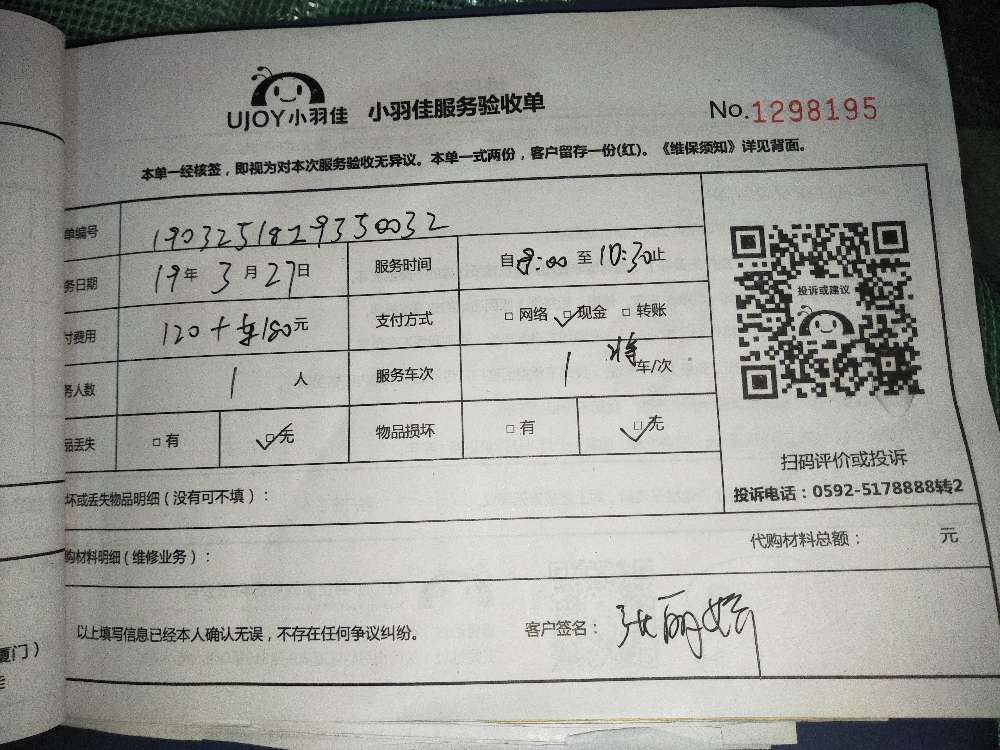 UJOY小羽佳 小羽佳服务验收单 No.1298195
本单一经核签，即视为对本次服务验收无异议。本单一式两份，客户留存一份(红)。《维保须知》详见背面。
单编号 1903251819350032
务日期 19年3月27日 服务时间 自8:00至10:30止
付费用 120+车180元 支付方式 □网络 ☑现金 □转账
务人数 1人 服务车次 1 车/次
品丢失 □有 ☑无 物品损坏 □有 ☑无
坏或丢失物品明细（没有可不填）：
购材料明细（维修业务）：
代购材料总额： 元
以上填写信息已经本人确认无误，不存在任何争议纠纷。 客户签名：张丽婷
投诉或建议
扫码评价或投诉
投诉电话：0592-5178888转2
厦门）